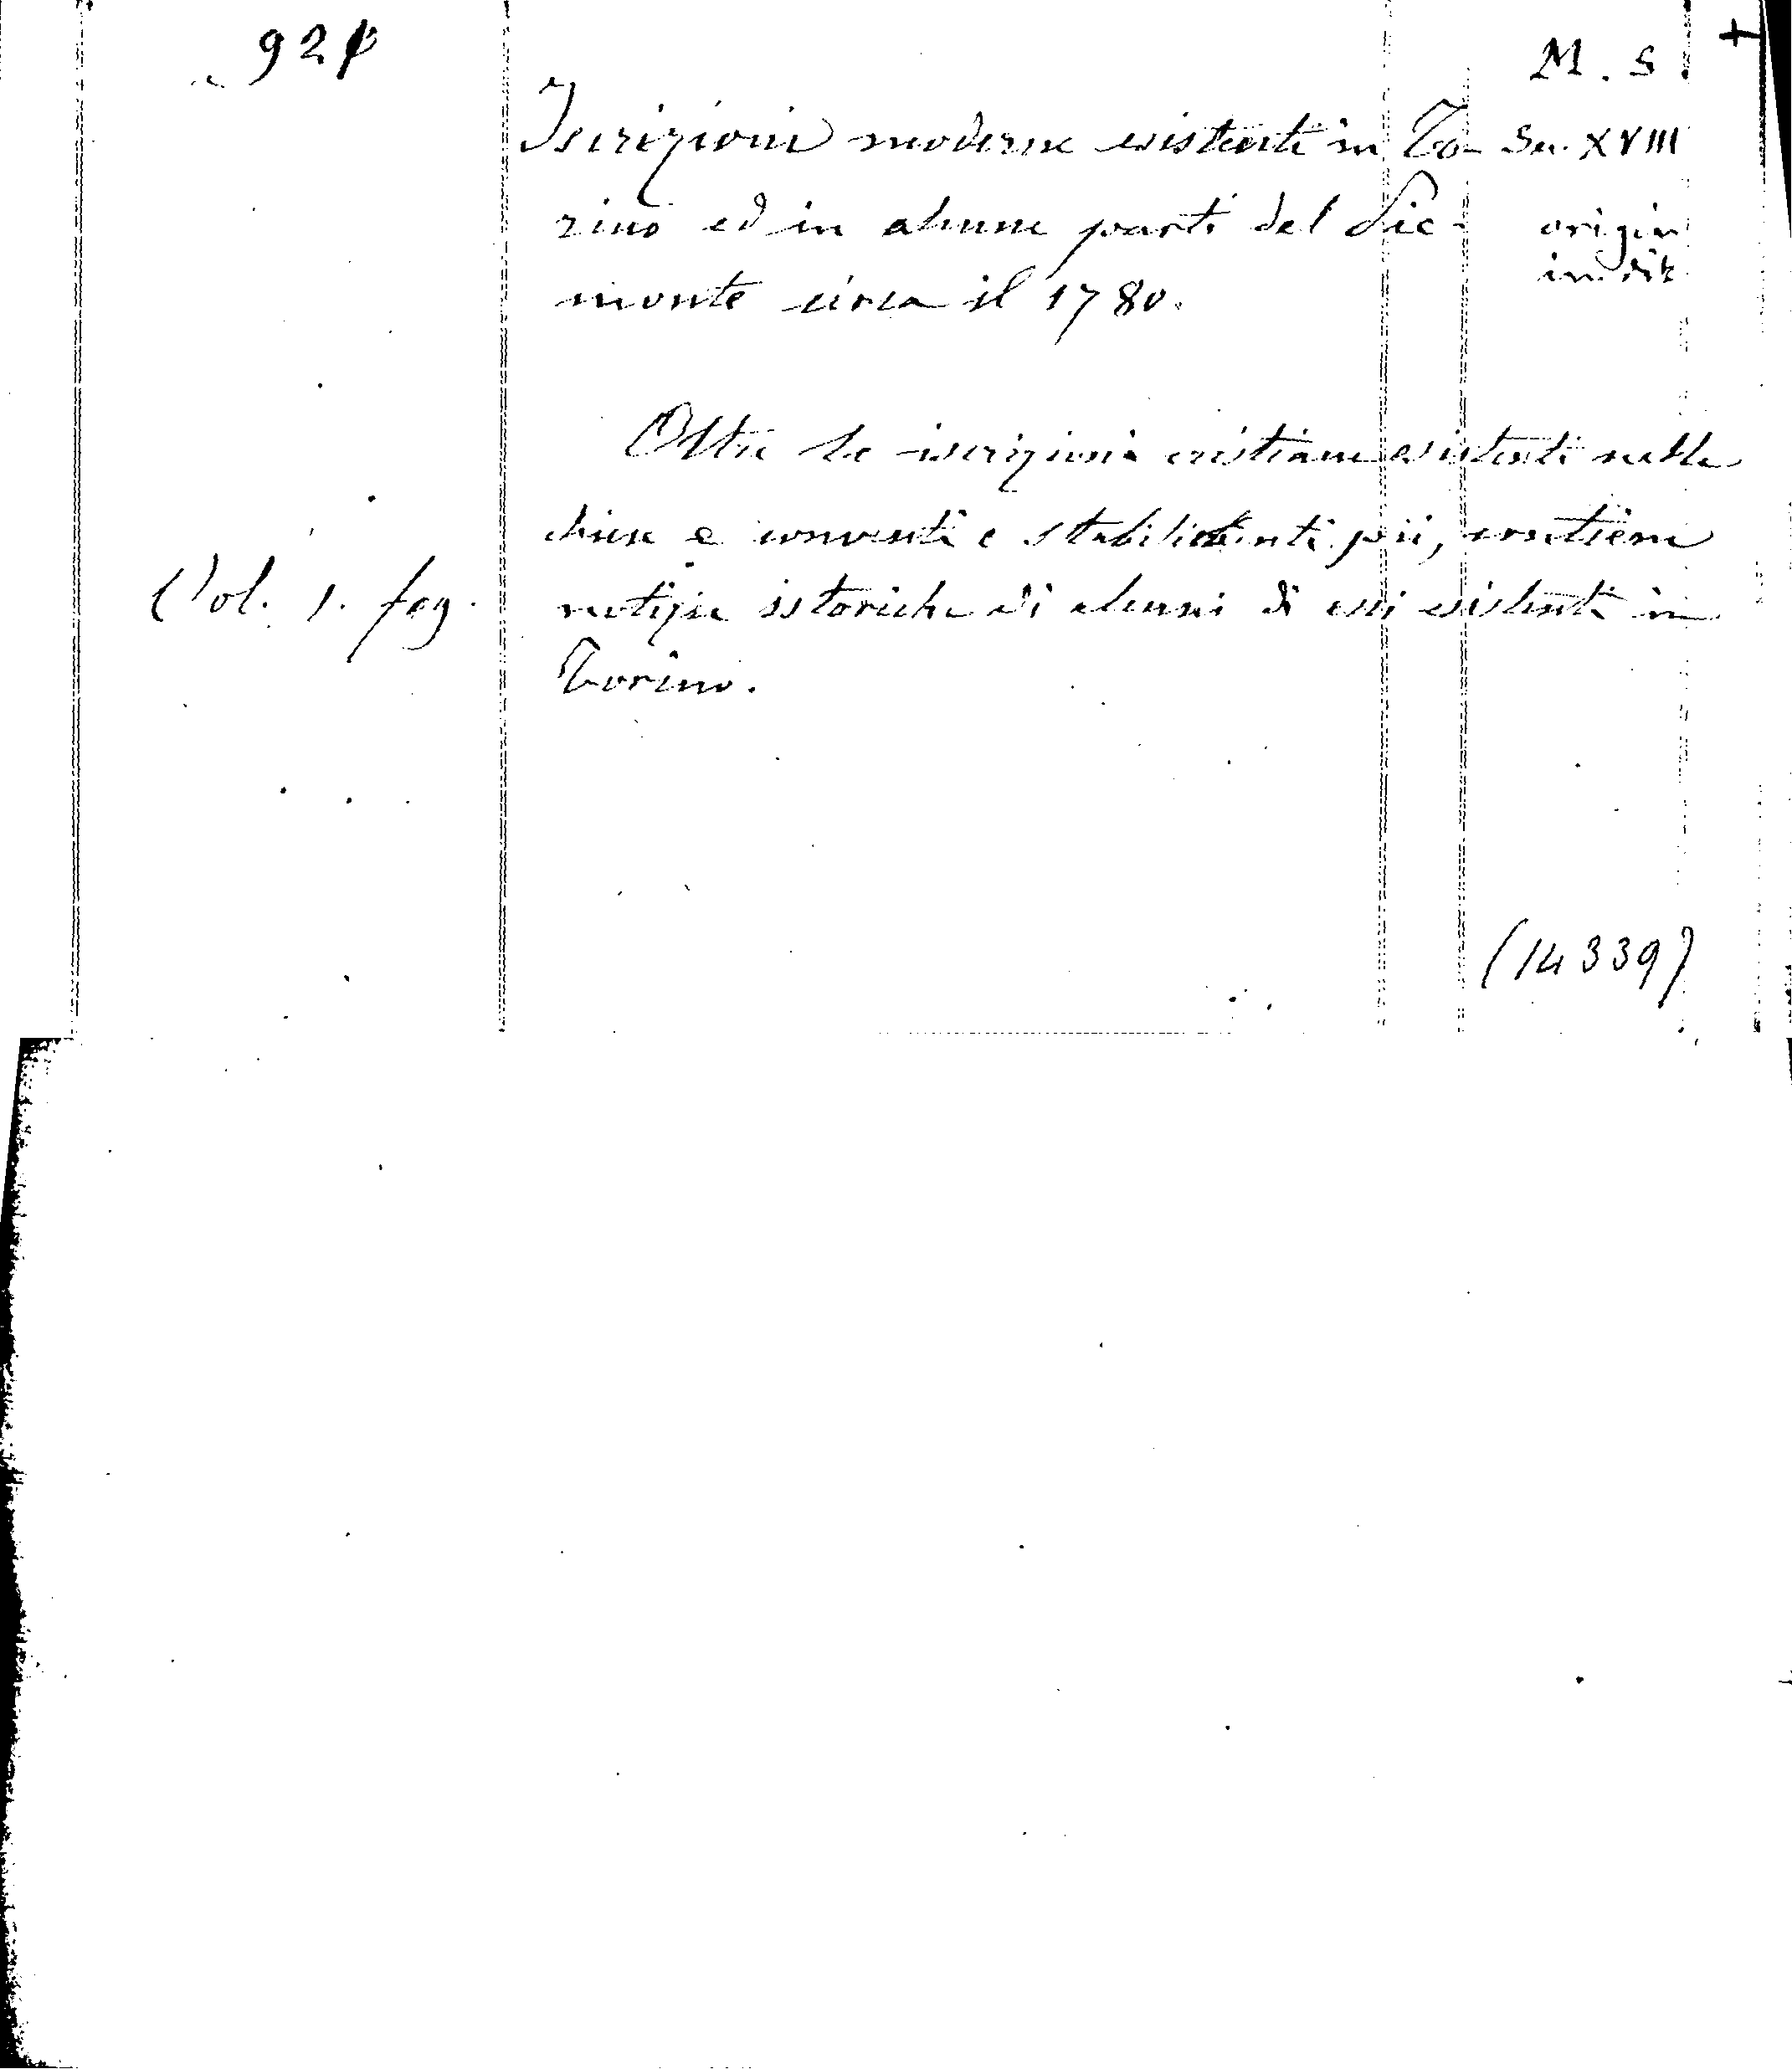 924
M. S.
+
Iscrizioni moderne esistenti in To-
Sec. XVIII
rino ed in alcune parti del Pie-
origin
inedit
monte circa il 1780.
Oltre le iscrizioni cristiane esistenti nelle
chiese e conventi e stabilimenti pii, contiene
Vol. 1. fog.
notizie istoriche di alcuni di essi esistenti in
Torino.
(14339)